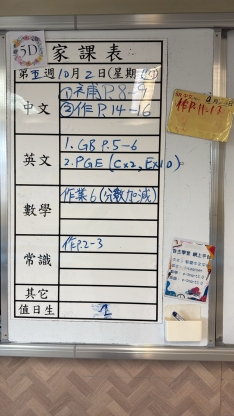 5D
家課表
第五週10月2日(星期四)
中文
①補P.8-9
②作P.14-16
英文
1. GB P.5-6
2. PGE (Cx2, Ex10)
數學
作業6(分數加減)
常識
作P.2-3
其它
值日生
自主學習 網上平台